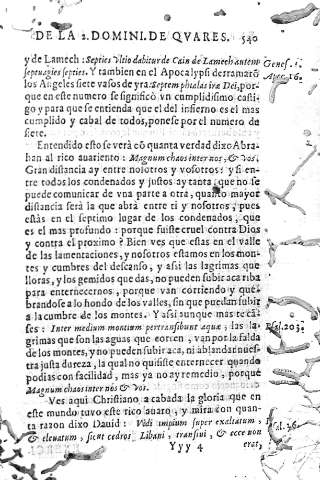 DE LA 2. DOMINI. DE QVARES. 540
y de Lamech: Septies vltio dabitur de Cain de Lamech autem
septuagies septies. Y tambien en el Apocalypsi derramarõ
los Angeles siete vasos de yra: Septem phialas iræ Dei, por-
que en este numero se significò vn cumplidissimo casti-
go y para que se entienda que el del infierno es el mas
cumplido y cabal de todos, ponese por el numero de
siete.
Entendido esto se verà cõ quanta verdad dixo Abra-
han al rico auariento: Magnum chaos inter nos, & vos.
Gran distancia ay entre nosotros y vosotros: y si en-
tre todos los condenados y justos ay tanta, que no se
puede comunicar de vna parte a otra, quanto mayor
distancia serà la que abrà entre ti y nosotros, pues
estàs en el septimo lugar de los condenados, que
es el mas profundo: porque fuiste cruel contra Dios
y contra el proximo? Bien ves que estas en el valle
de las lamentaciones, y nosotros estamos en los mon-
tes y cumbres del descanso, y assi las lagrimas que
lloras, y los gemidos que das, no pueden subir acà riba
para enternecernos, porque van corriendo y que-
brandose a lo hondo de los valles, sin que puedan subir
a la cumbre de los montes. Y assi aunque mas te cã-
ses: Inter medium montium pertransibunt aquæ, las la-
grimas que son las aguas que corren, van por la falda
de los montes, y no pueden subir aca, ni ablandar nues-
tra justa dureza, la qual no quisiste enternecer quando
podias con facilidad, mas ya no ay remedio, porque
Magnum chaos inter nos & vos.
Ves aqui Christiano acabada la gloria que en
este mundo tuvo este rico auaro, y mira con quan-
ta razon dixo Dauid: Vidi impium super exaltatum,
& eleuatum, sicut cedros Libani, transiui, & ecce non
Yyy 4 erat,
Genes. 4.
Apoc. 16.
Psal. 103.
Psal. 36.